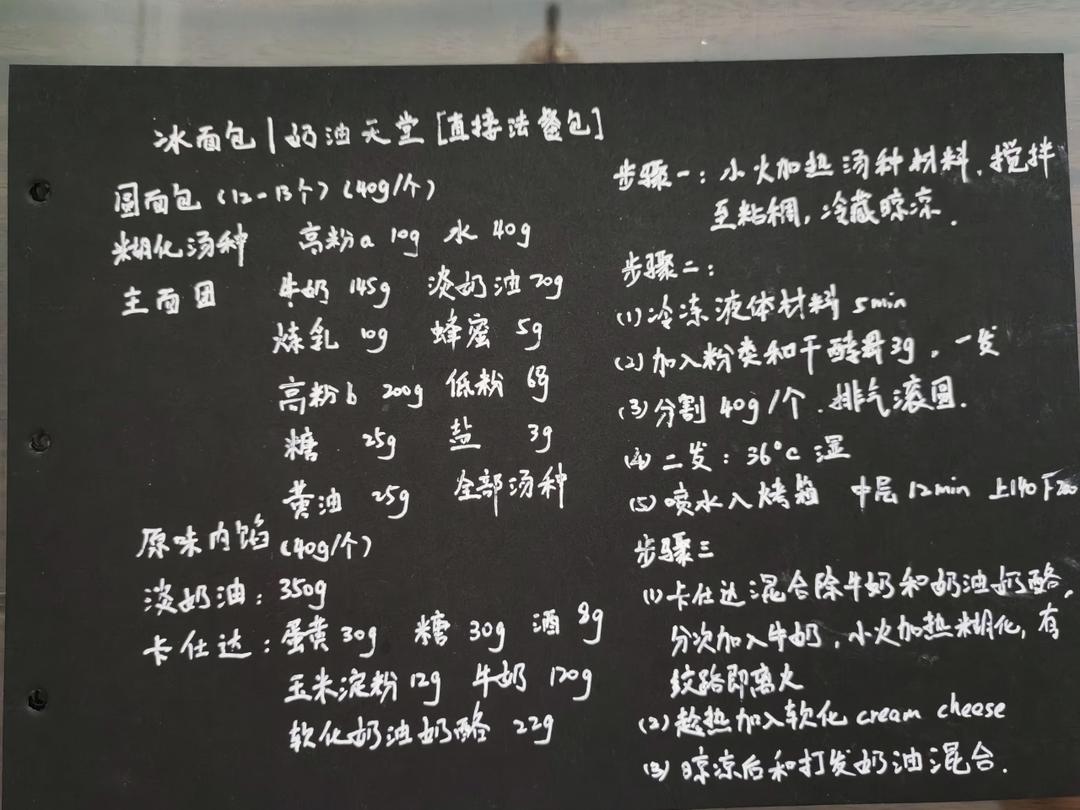 冰面包 | 奶油天堂 [直接法餐包]
圆面包 (12-13个) (40g/个)
糊化汤种 高粉a 10g 水 40g
主面团 牛奶 145g 淡奶油 20g
炼乳 10g 蜂蜜 5g
高粉b 200g 低粉
糖 25g 盐 3g
黄油 25g 全部汤种
原味内馅 (40g/个)
淡奶油: 350g
卡仕达: 蛋黄 30g 糖 30g 酒 8g
玉米淀粉 12g 牛奶 120g
软化奶油奶酪 22g
步骤一: 小火加热汤种材料, 搅拌
至粘稠, 冷藏晾凉.
步骤二:
(1) 冷冻液体材料 5min
(2) 加入粉类和干酵母3g, 一发
(3) 分割 40g/个. 排气滚圆.
(4) 二发: 36°C 湿
(5) 喷水入烤箱 中层 12min 上140下200
步骤三
(1) 卡仕达混合除牛奶和奶油奶酪,
分次加入牛奶, 小火加热糊化, 有
纹路即离火
(2) 趁热加入软化 cream cheese
(3) 晾凉后和打发奶油混合.